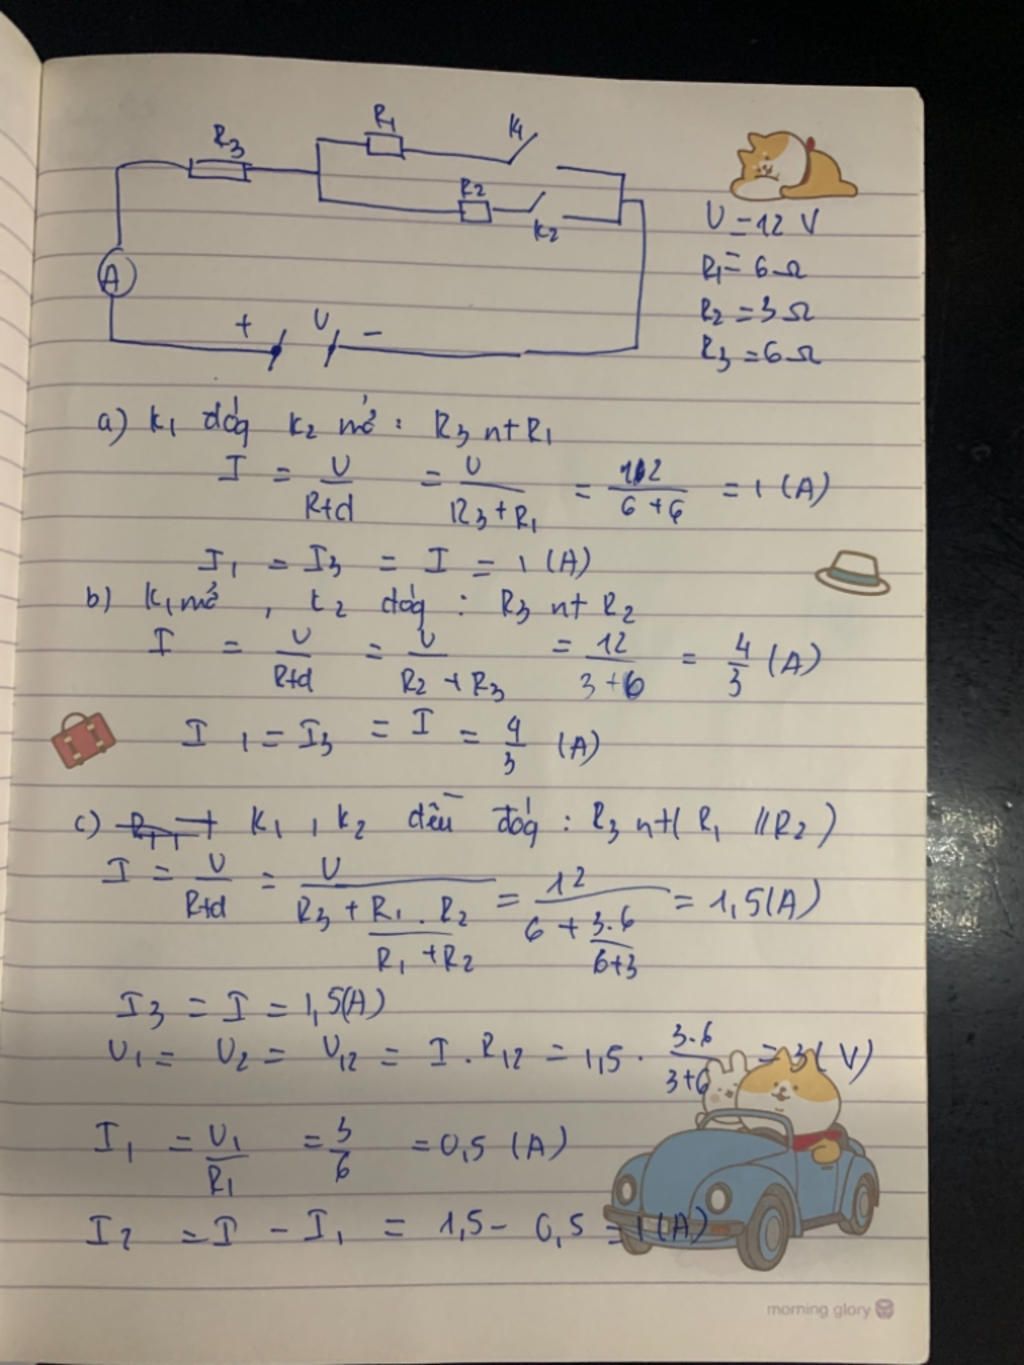 R3
R1
K1
R2
K2
A
+ U -
U = 12 V
R1 = 6 Ω
R2 = 3 Ω
R3 = 6 Ω
a) K1 đóg K2 mở : R3 nt R1
I = U/Rtd = U/(R3 + R1) = 12/(6 + 6) = 1 (A)
I1 = I3 = I = 1 (A)
b) K1 mở , K2 đóg : R3 nt R2
I = U/Rtd = U/(R2 + R3) = 12/(3 + 6) = 4/3 (A)
I1 = I3 = I = 4/3 (A)
c) K1 , K2 đều đóg : R3 nt ( R1 // R2 )
I = U/Rtd = U/(R3 + (R1 . R2)/(R1 + R2)) = 12/(6 + (3.6)/(6+3)) = 1,5 (A)
I3 = I = 1,5 (A)
U1 = U2 = U12 = I . R12 = 1,5 . (3.6)/(3+6) = 3 (V)
I1 = U1/R1 = 3/6 = 0,5 (A)
I2 = I - I1 = 1,5 - 0,5 = 1 (A)
morning glory